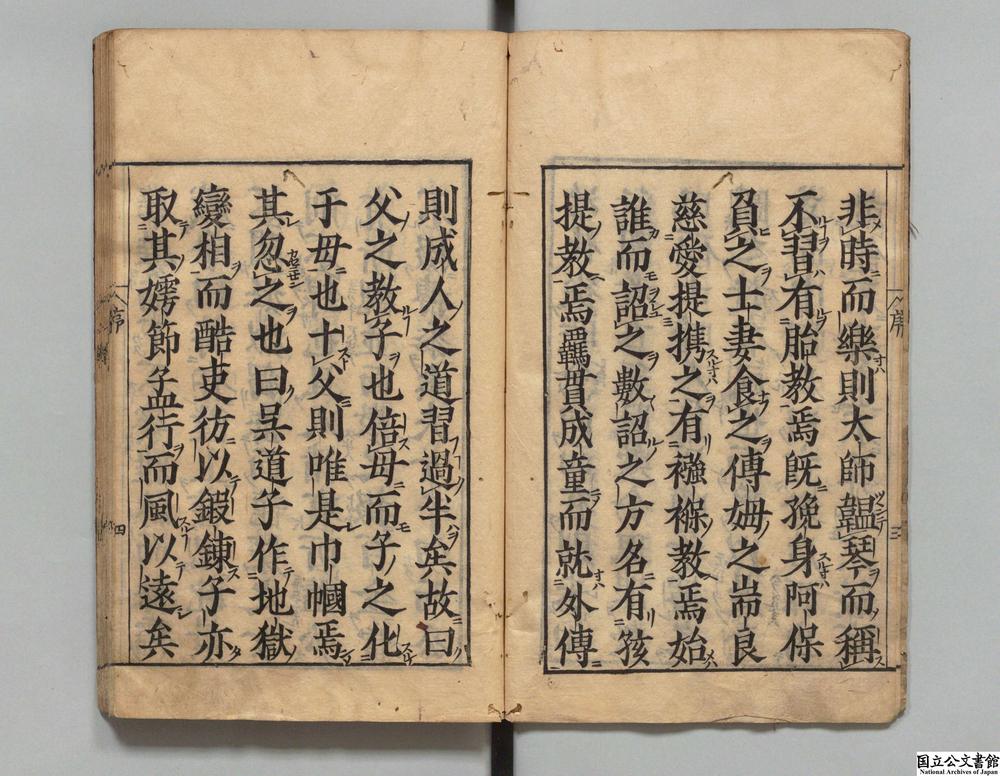 非時而樂則太師韞琴而稱
不習有胎教焉旣娩身阿保
負之士妻食之傅姆之耑良
慈愛提攜之有襁褓教焉始
誰而詔之數詔之方名有孩
提教焉羈貫成童而就外傅
序
三
則成人之道習過半矣故曰
父之教子也倍母而子之化
于母也十父則唯是巾幗焉
其忽之也曰吳道子作地獄
變相而酷吏彷以鍜鍊子亦
取其嫮節孟行而風以遠矣
序
四
国立公文書館
National Archives of Japan